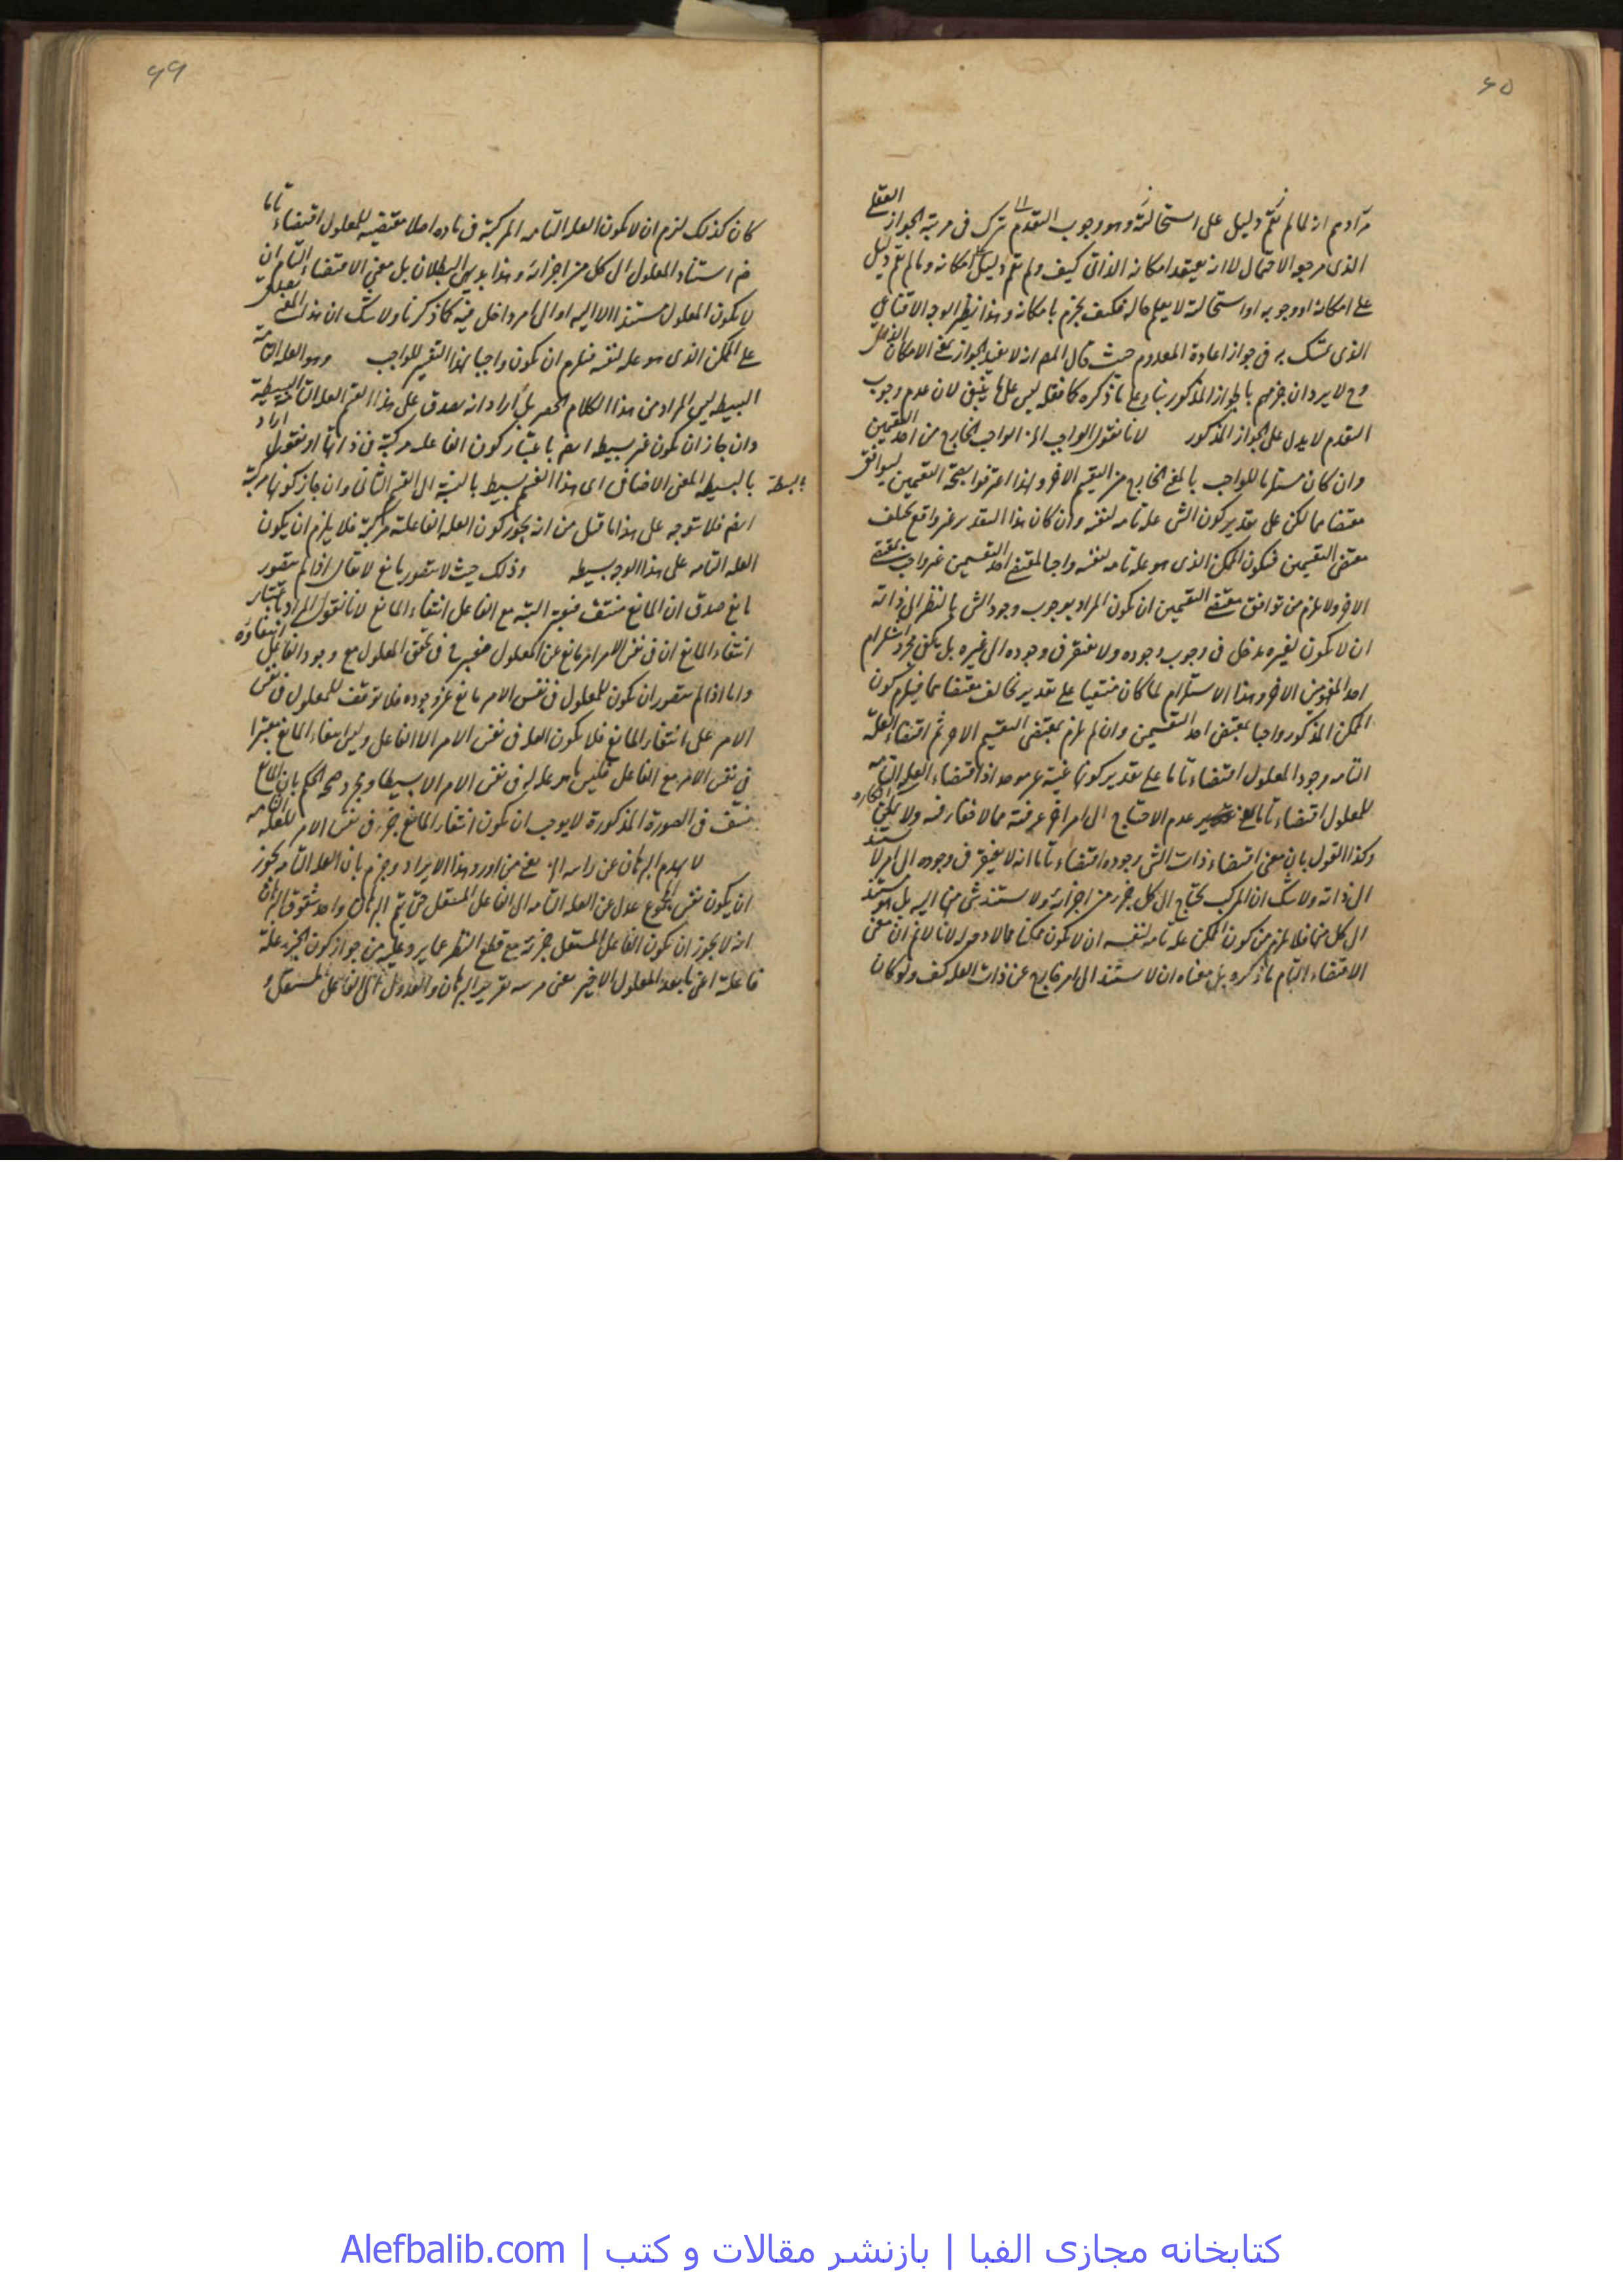 ٦٥
مرادهم انه لما لم يقم دليل على استحالته وهو وجوب التقدم ترك فى مرتبة الجواز العقلى
الذى مرجعه الاحتمال لا انه يعتقد امكانه الذاتى كيف ولم يقم دليل على امكانه وما لم يقم دليل
على امكانه او وجوبه او استحالته لا يعلم حاله فكيف يجزم بامكانه وهذا نظير الوجه الاقناعى
الذى تمسك به فى جواز اعادة المعدوم حيث قال المصـ انه لا يفيد الجواز بمعنى الامكان الذاتى
وح لا يرد ان جزمهم بالجواز المذكور بناء على ما ذكره كما نقله ليس على ما ينبغى لان عدم وجوب
التقدم لا يدل على الجواز المذكور لانا نقول الواجب الخ الواجب الخارج من احد التقسيمين
وان كان مستلزما للواجب بالمعنى الخارج من التقسيم الاخر ولهذا اعترفوا بصحة التقسيمين ليوافق
مقتضاهما لكن على تقدير كون الشى علة تامة لنفسه وان كان هذا التقدير غير واقع يختلف
مقتضى التقسيمين فيكون الممكن الذى هو علة تامة لنفسه واجبا لمقتضى احد التقسيمين غير واجب بمقتضى
الاخر ولا يلزم من توافق مقتضى التقسيمين ان يكون المراد بوجوب وجود الشى بالنظر الى ذاته
ان لا يكون لغيره مدخل فى وجوب وجوده ولا يفتقر فى وجوده الى غيره بل يكفى مجرد استلزام
احد المفهومين الاخر وهذا الاستلزام لما كان منتفيا على تقدير تخالف مقتضاهما فيلزم كون
الممكن المذكور واجبا بمقتضى احد التقسيمين وان لم يلزم بمقتضى التقسيم الاخر ثم اقتضاء العلة
التامة وجود المعلول اقتضاء تاما على تقدير كونها
للمعلول اقتضاء تاما بمعنى عدم الاحتياج الى امر اخر عرفته مما لا خفاء فيه ولا يمكن انكاره
وكذا القول بان معنى اقتضاء ذات الشى وجوده اقتضاء تاما انه لا يفتقر فى وجوده الى امر لا يستند
الى ذاته ولا شك ان المركب يحتاج الى كل جزء من اجزائه ولا يستند شى منها اليه بل هو مستند
الى كل منها فلا يلزم من كون الممكن علة تامة لنفسه ان لا يكون ممكنا مما لا وجه له لانا لا نم ان معنى
الاقتضاء التام ما ذكره بل معناه ان لا يستند الى امر خارج عن ذات العلة كيف ولو كان
٦٦
كان كذلك لزم ان لا يكون العلة التامة المركبة فى مادة اصلا مقتضية للمعلول اقتضاء تاما
ضـ استناد المعلول الى كل من اجزائه وهذا بديهى البطلان بل معنى الاقتضاء التام ان
لا يكون المعلول مستندا الا اليه او الى امر داخل فيه كما ذكرنا ولا شك ان هذا المعنى يصدق
على الممكن الذى هو علة لنفسه فيلزم ان يكون واجبا بهذا التفسير للواجب وهو العلة التامة
البسيطة ليس المراد من هذا الكلام الحصر بل اراد انه يصدق على هذا القسم العلة التامة البسيطة
وان جاز ان يكون غير بسيطة ايضم باعتبار كون الفاعلة مركبة فى ذاتها او نقول اراد
بالبسيطة
بالبسيطة المعنى الاضافى اى هذا القسم بسيط بالنسبة الى القسم الثانى وان جاز كونها مركبة
ايضم فلا يتوجه على هذا ما قيل من انه يجوز كون العلة الفاعلة مركبة فلا يلزم ان يكون
العلة التامة على هذا الوجه بسيطة وذلك حيث لا يتصور مانع لا يقال اذا لم يتصور
مانع صدق ان المانع منتف فيعتبر البتة مع الفاعل انتفاء المانع لانا نقول المراد باعتبار
انتفاء المانع ان فى نفس الامر امرا مانعا عن المعلول فيعتبر فى تحقق المعلول مع وجود الفاعل انتفاؤه
واما اذا لم يتصور ان يكون للمعلول فى نفس الامر مانع عن وجوده فلا توقف للمعلول فى نفس
الامر على انتفاء المانع فلا يكون العلة فى نفس الامر الا الفاعل وليس انتفاء المانع معتبرا
فى نفس الامر مع الفاعل فليس ما هو علة له فى نفس الامر الا بسيطا ومجرد صحة الحكم بان المانع
منتف فى الصورة المذكورة لا يوجب ان يكون انتفاء المانع جزء فى نفس الامر للعلة التامة
لا يهدم البرهان عن راسه الخ يعنى من اورد هذا الايراد وجزم بان العلة التامة يجوز
ان يكون نفس المجموع عدل عن العلة التامة الى الفاعل المستقل حتى يتم البرهان واحد شقوق البرهان
انه لا يجوز ان يكون الفاعل المستقل جزءه مع قطع النظر عما يرد عليه من جواز كون الجزء علة
فاعلة اعنى ما بعد المعلول الاخير يعنى تقرير البرهان والعدول الى الفاعل المستقل
کتابخانه مجازی الفبا | بازنشر مقالات و کتب | Alefbalib.com